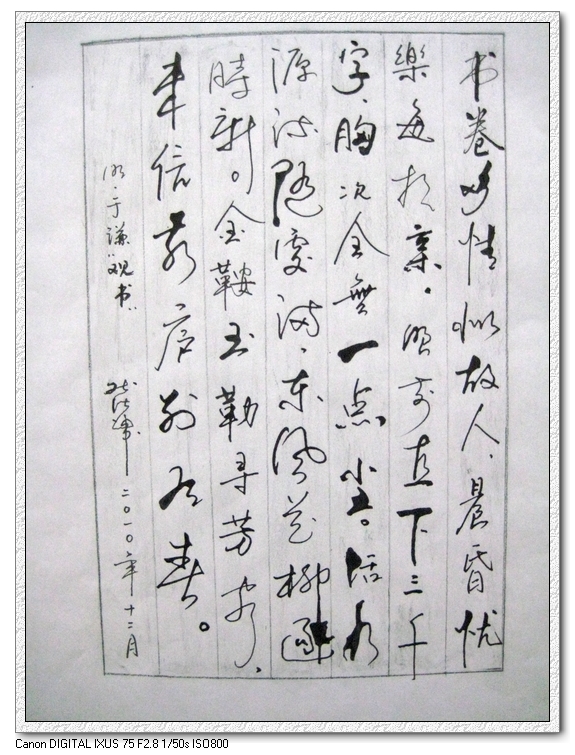 书卷多情似故人，晨昏忧
樂每相亲。眼前直下三千
字，胸次全無一点尘。活水
源流随處满，东风花柳逐
時新。金鞍玉勒寻芳客，
未信我庐别有春。
明·于谦"观书" 二〇一〇年十二月
Canon DIGITAL IXUS 75 F2.8 1/50s ISO800